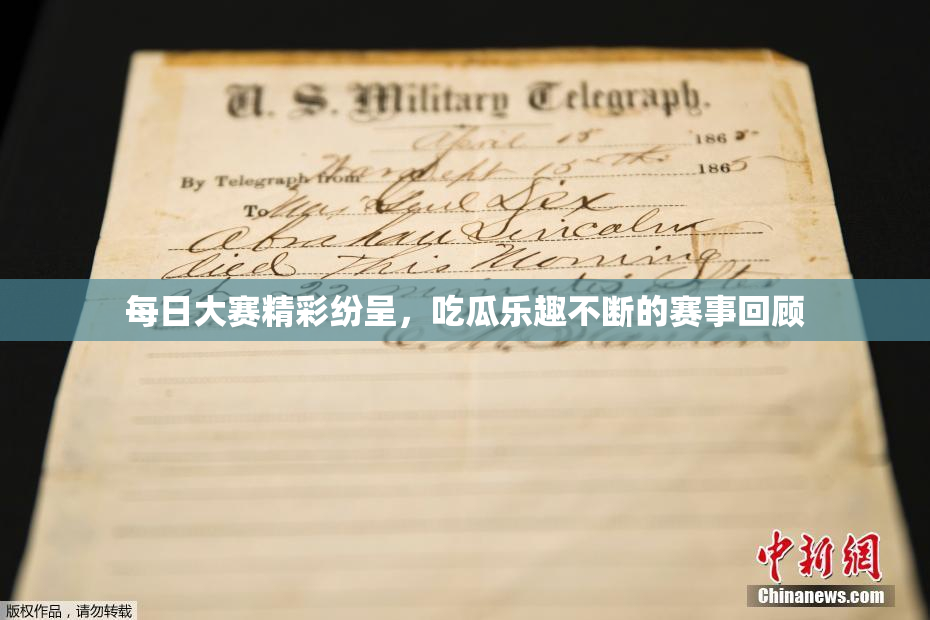 U. S. Military Telegraph.
April 15 1865
By Telegraph from War Dept 15th 1865
To Maj Genl Dix
Abraham Lincoln
died This Morning
22 minutes after
每日大赛精彩纷呈，吃瓜乐趣不断的赛事回顾
E. M. Stanton
中新网
Chinanews.com
版权作品，请勿转载